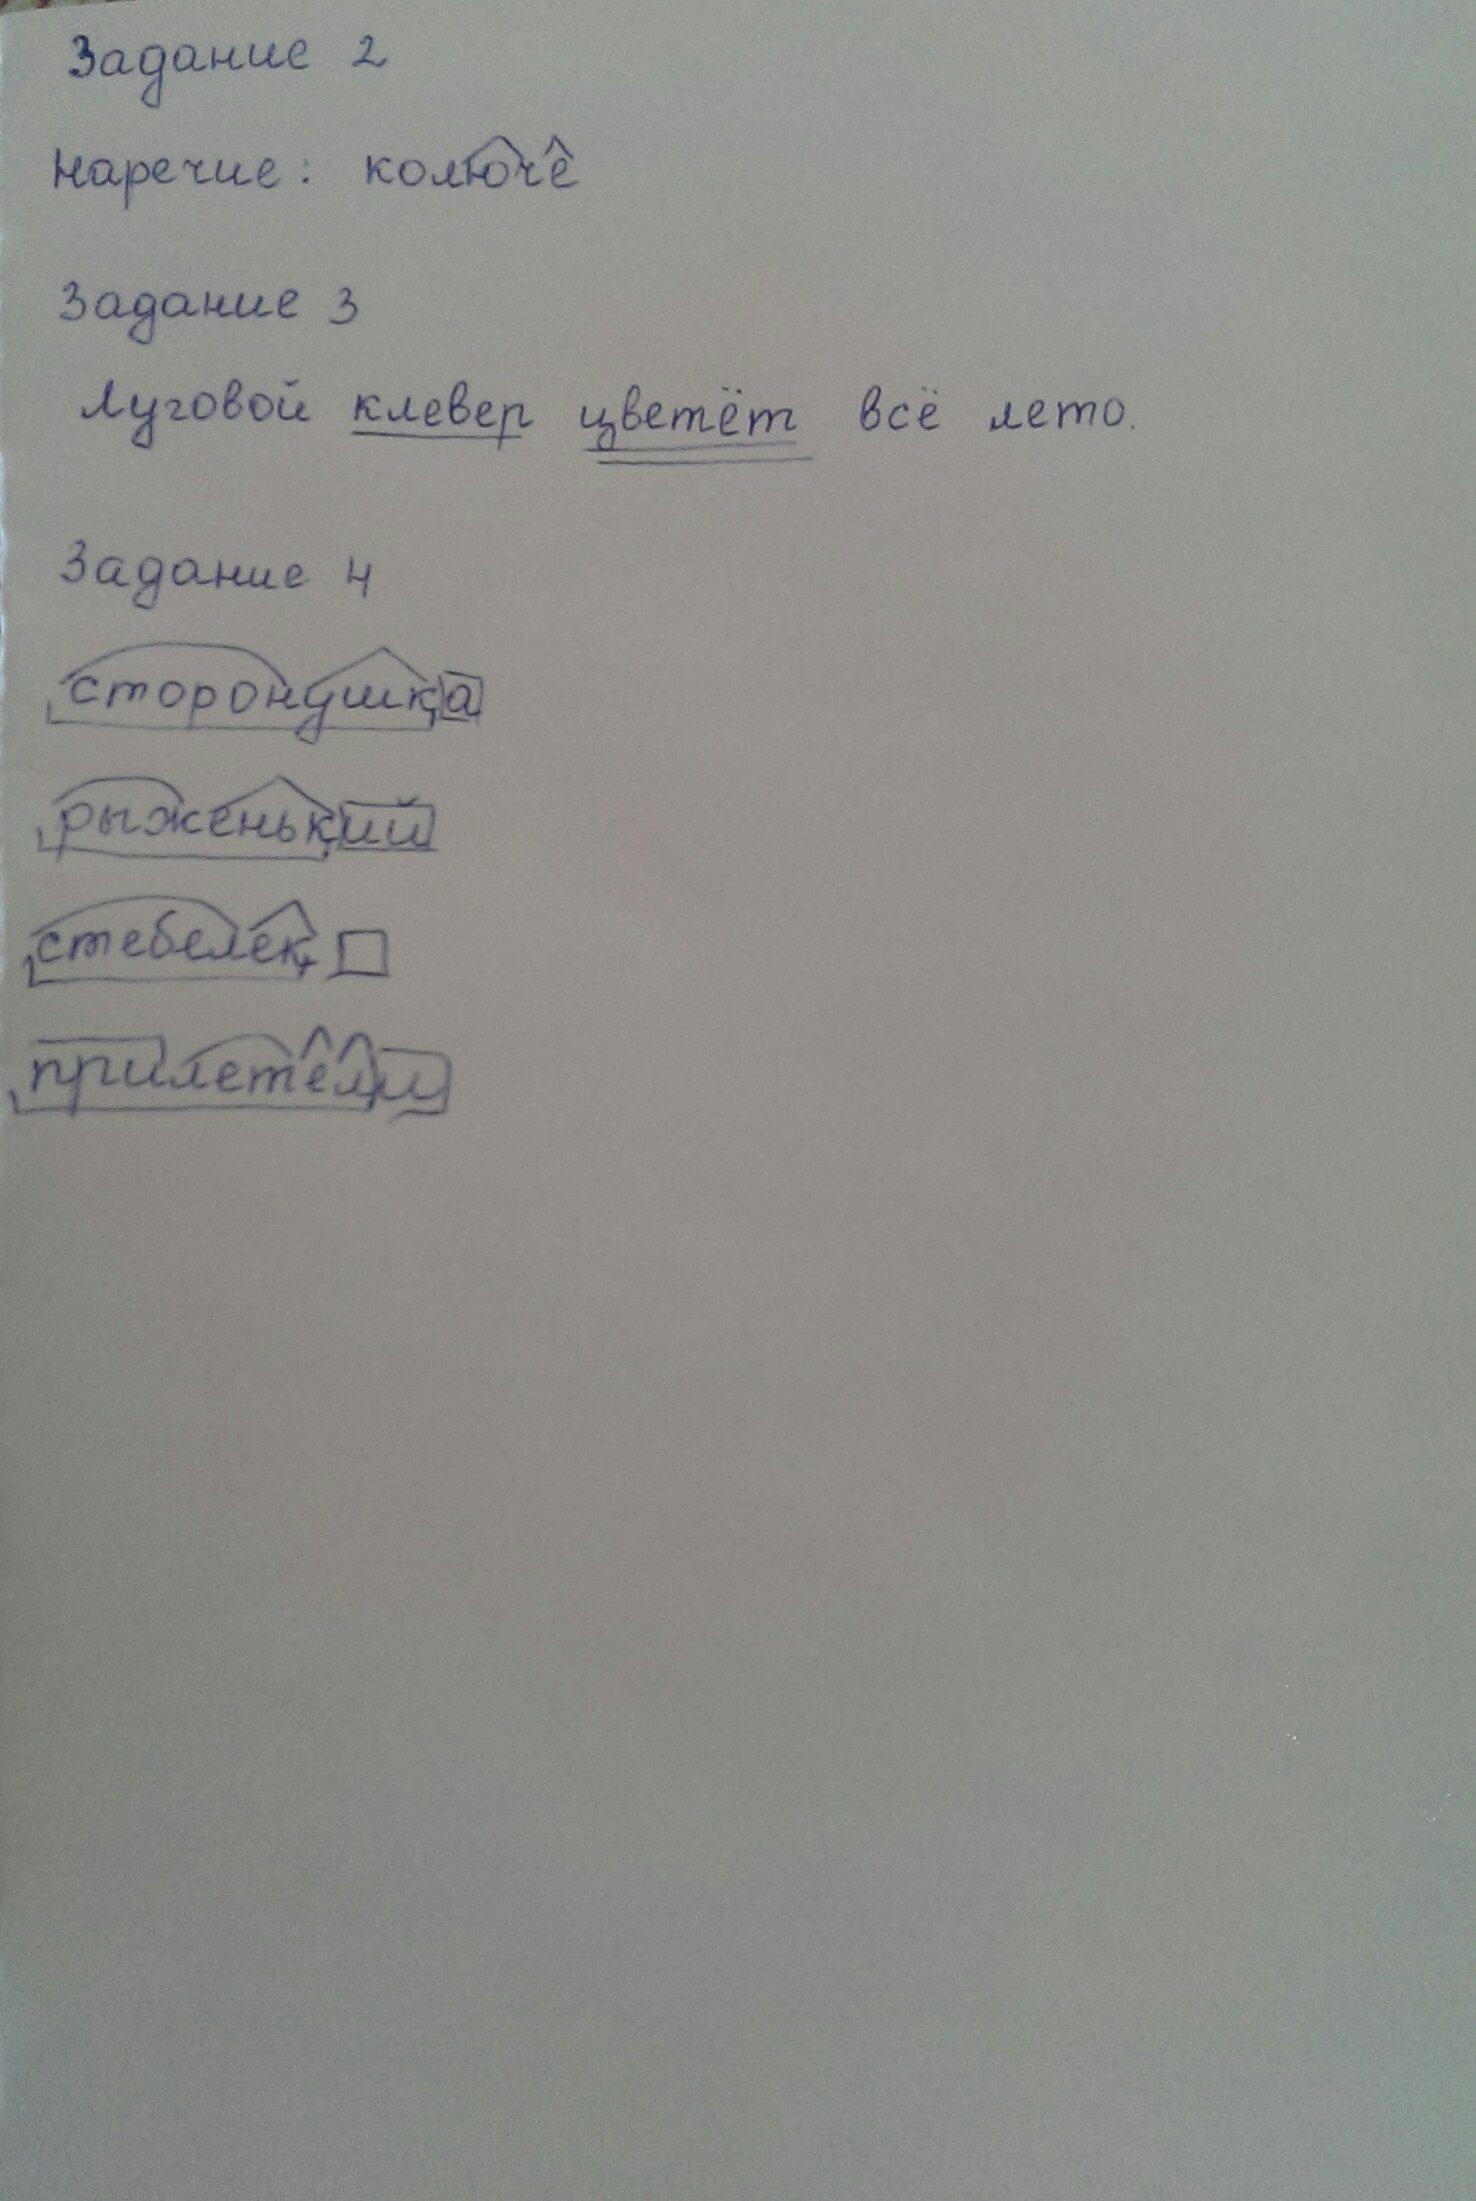 Задание 2
Наречие: колюче
Задание 3
Луговой клевер цветёт всё лето.
Задание 4
сторонушка
рыженький
стебелек
прилетели